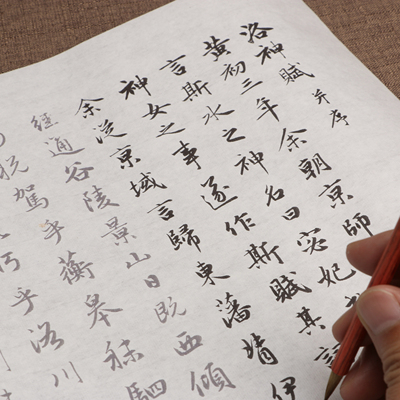 洛神賦并序
黄初三年余朝京師
言斯水之神名曰宓妃
神女之事遂作斯賦其詞
余從京域言歸東藩背伊
經通谷陵景山日既西傾
税駕乎蘅皋秣駟
乎洛川